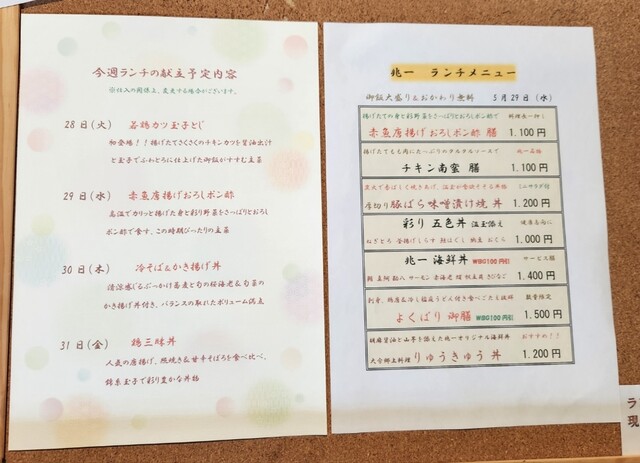 今週ランチの献立予定内容
※仕入の関係上、変更する場合がございます。
28日(火) 若鶏カツ玉子とじ
初登場!!揚げたてさくさくのチキンカツを醤油出汁
と玉子でふわとろに仕上げた御飯がすすむ主菜
29日(水) 赤魚唐揚げおろしポン酢
高温でカリッと揚げた身と彩り野菜をさっぱりとおろし
ポン酢で食す、この時期ぴったりの主菜
30日(木) 冷そば&かき揚げ丼
清涼感じるぶっかけ蕎麦と旬の桜海老&旬菜の
かき揚げ丼付き、バランスの取れたボリューム満点
31日(金) 鶏三昧丼
人気の唐揚げ、照焼き&甘辛そぼろを食べ比べ、
錦糸玉子で彩り豊かな丼物
兆一 ランチメニュー
御飯大盛り&おかわり無料 5月29日(水)
揚げたての身と彩り野菜をさっぱりとおろしポン酢で 料理長一押し
赤魚唐揚げおろしポン酢 膳 1.100円
揚げたてもも肉にたっぷりのタルタルソースで 兆一名物
チキン南蛮 膳 1.100円
豚ばら味噌漬け焼 丼 1.200円
ミニサラダ付
厚切り
彩り 五色丼 温玉添え 健康志向に
ねぎとろ 釜揚げしらす 鮭ほぐし 納豆 おくら 1.000円
兆一 海鮮丼 WBG100円引 サービス膳
1.400円
刺身、鶏唐&冷し稲庭うどん付き食べごたえ抜群 数量限定
よくばり 御膳 WBG100円引 1.500円
胡麻醤油と山芋を添えた兆一オリジナル海鮮丼 おすすめ!!
大分郷土料理 りゅうきゅう 丼 1.200円
ラ
現